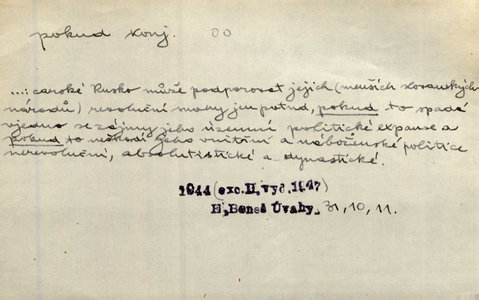 pokud konj.
...: carské Rusko může podporovat jejich (menších slovanských
národů) revoluční snahy jen potud, pokud to spadá
vjedno se zájmy jeho územní politické expanse a
pokud to neškodí jeho vnitřní a náboženské politice
nerevoluční, absolutistické a dynastické.
1944 (exc.II, vyd. 1947)
E. Beneš Úvahy, 31, 10, 11.